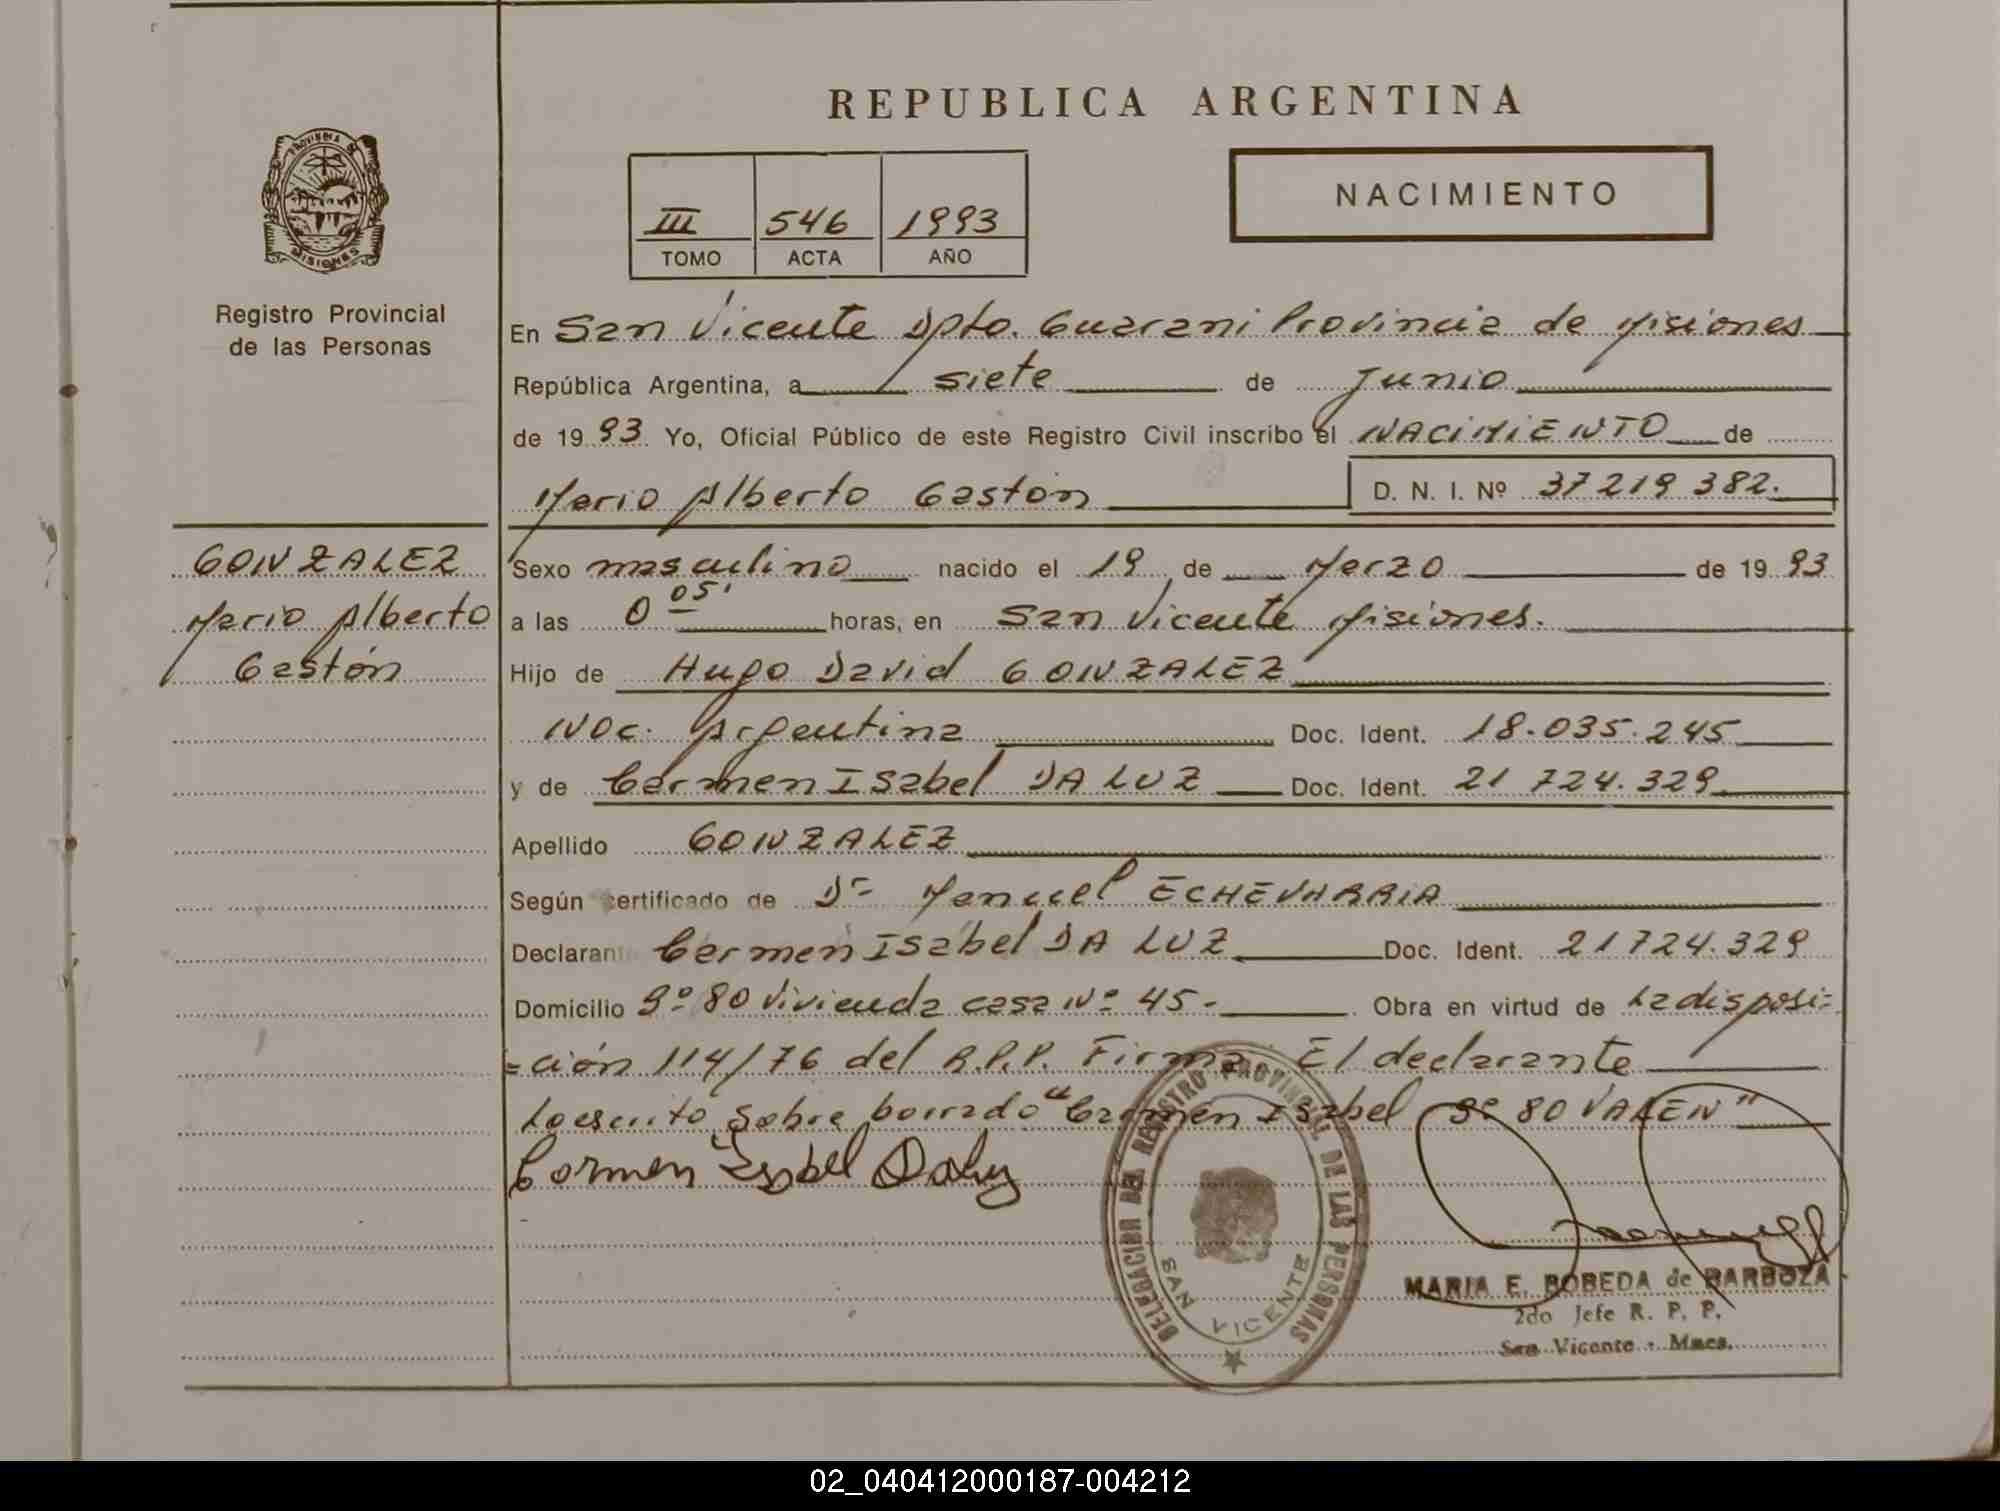 REPUBLICA ARGENTINA
PROVINCIA DE
MISIONES
NACIMIENTO
III 546 1993
TOMO ACTA AÑO
Registro Provincial
de las Personas
En San Vicente Dpto. Guarani Provincia de Misiones
República Argentina, a siete de Junio
de 1993 Yo, Oficial Público de este Registro Civil inscribo el NACIMIENTO de
Mario Alberto Gastón D. N. I. Nº 37 219 382.
GONZALEZ
Mario Alberto
Gastón
Sexo masculino nacido el 19 de Marzo de 1993
a las 0 05' horas, en San Vicente Misiones.
Hijo de Hugo David GONZALEZ
Nac. Argentina Doc. Ident. 18.035.245
y de Carmen Isabel DA LUZ Doc. Ident. 21 724.329
Apellido GONZALEZ
Según certificado de Dr Manuel ECHEVARRIA
Declarante Carmen Isabel DA LUZ Doc. Ident. 21724.329
Domicilio Bº 80 Vivienda casa Nº 45.- Obra en virtud de La disposi=
=ción 114/76 del R.P.P. Firma: El declarante
Lo escrito sobre borrado "Carmen Isabel Bº 80 VALEN"
Carmen Isabel Daluz
DELEGACION DEL REGISTRO PROVINCIAL DE LAS PERSONAS
SAN VICENTE
MARIA E. BOBEDA de BARBOZA
2do Jefe R. P. P.
San Vicente - Mnes.
02_040412000187-004212